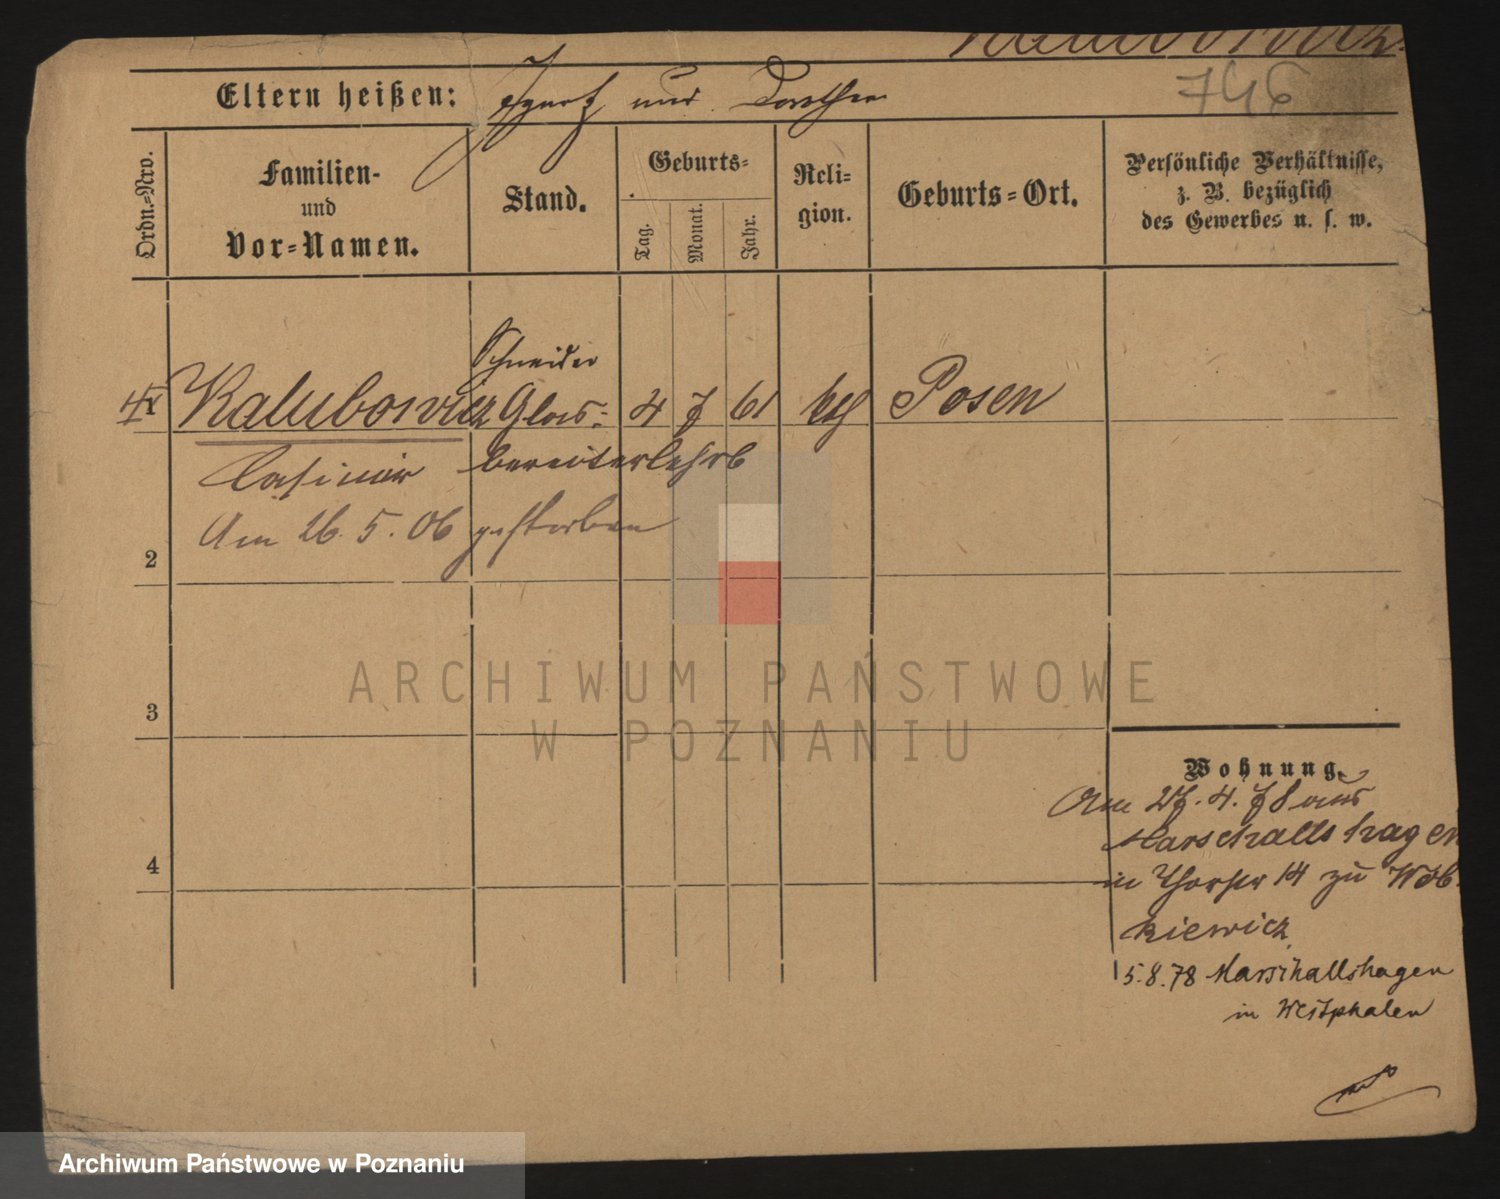 746
Eltern heißen: Ignatz und Dorothea
Ordn.-Nro.
Familien-
und
Vor-Namen.
Stand.
Geburts-
Tag.
Monat.
Jahr.
Reli-
gion.
Geburts-Ort.
Persönliche Verhältnisse,
z. B. bezüglich
des Gewerbes u. s. w.
Schneider
Kalubowicz Glas- 4 7 61 kth Posen
Casimir
Am 26.5.06 gestorben
2
3
4
Wohnung.
Am 27.4.78 aus
Marschallshagen
in 14 zu Wob-
kiewicz
5.8.78 Marschallshagen
in Westphalen
ARCHIWUM PAŃSTWOWE
W POZNANIU
Archiwum Państwowe w Poznaniu